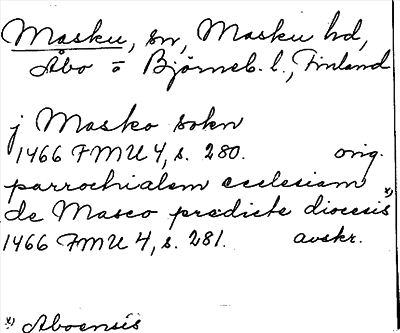 Masku, sn, Masku hd,
Åbo o Björneb. l., Finland
j Masko sokn
1466 FMU 4, s. 280. orig.
parrochialem ecclesiam
de Masco predicte diocesis x)
1466 FMU 4, s. 281. avskr.
x) Aboensis